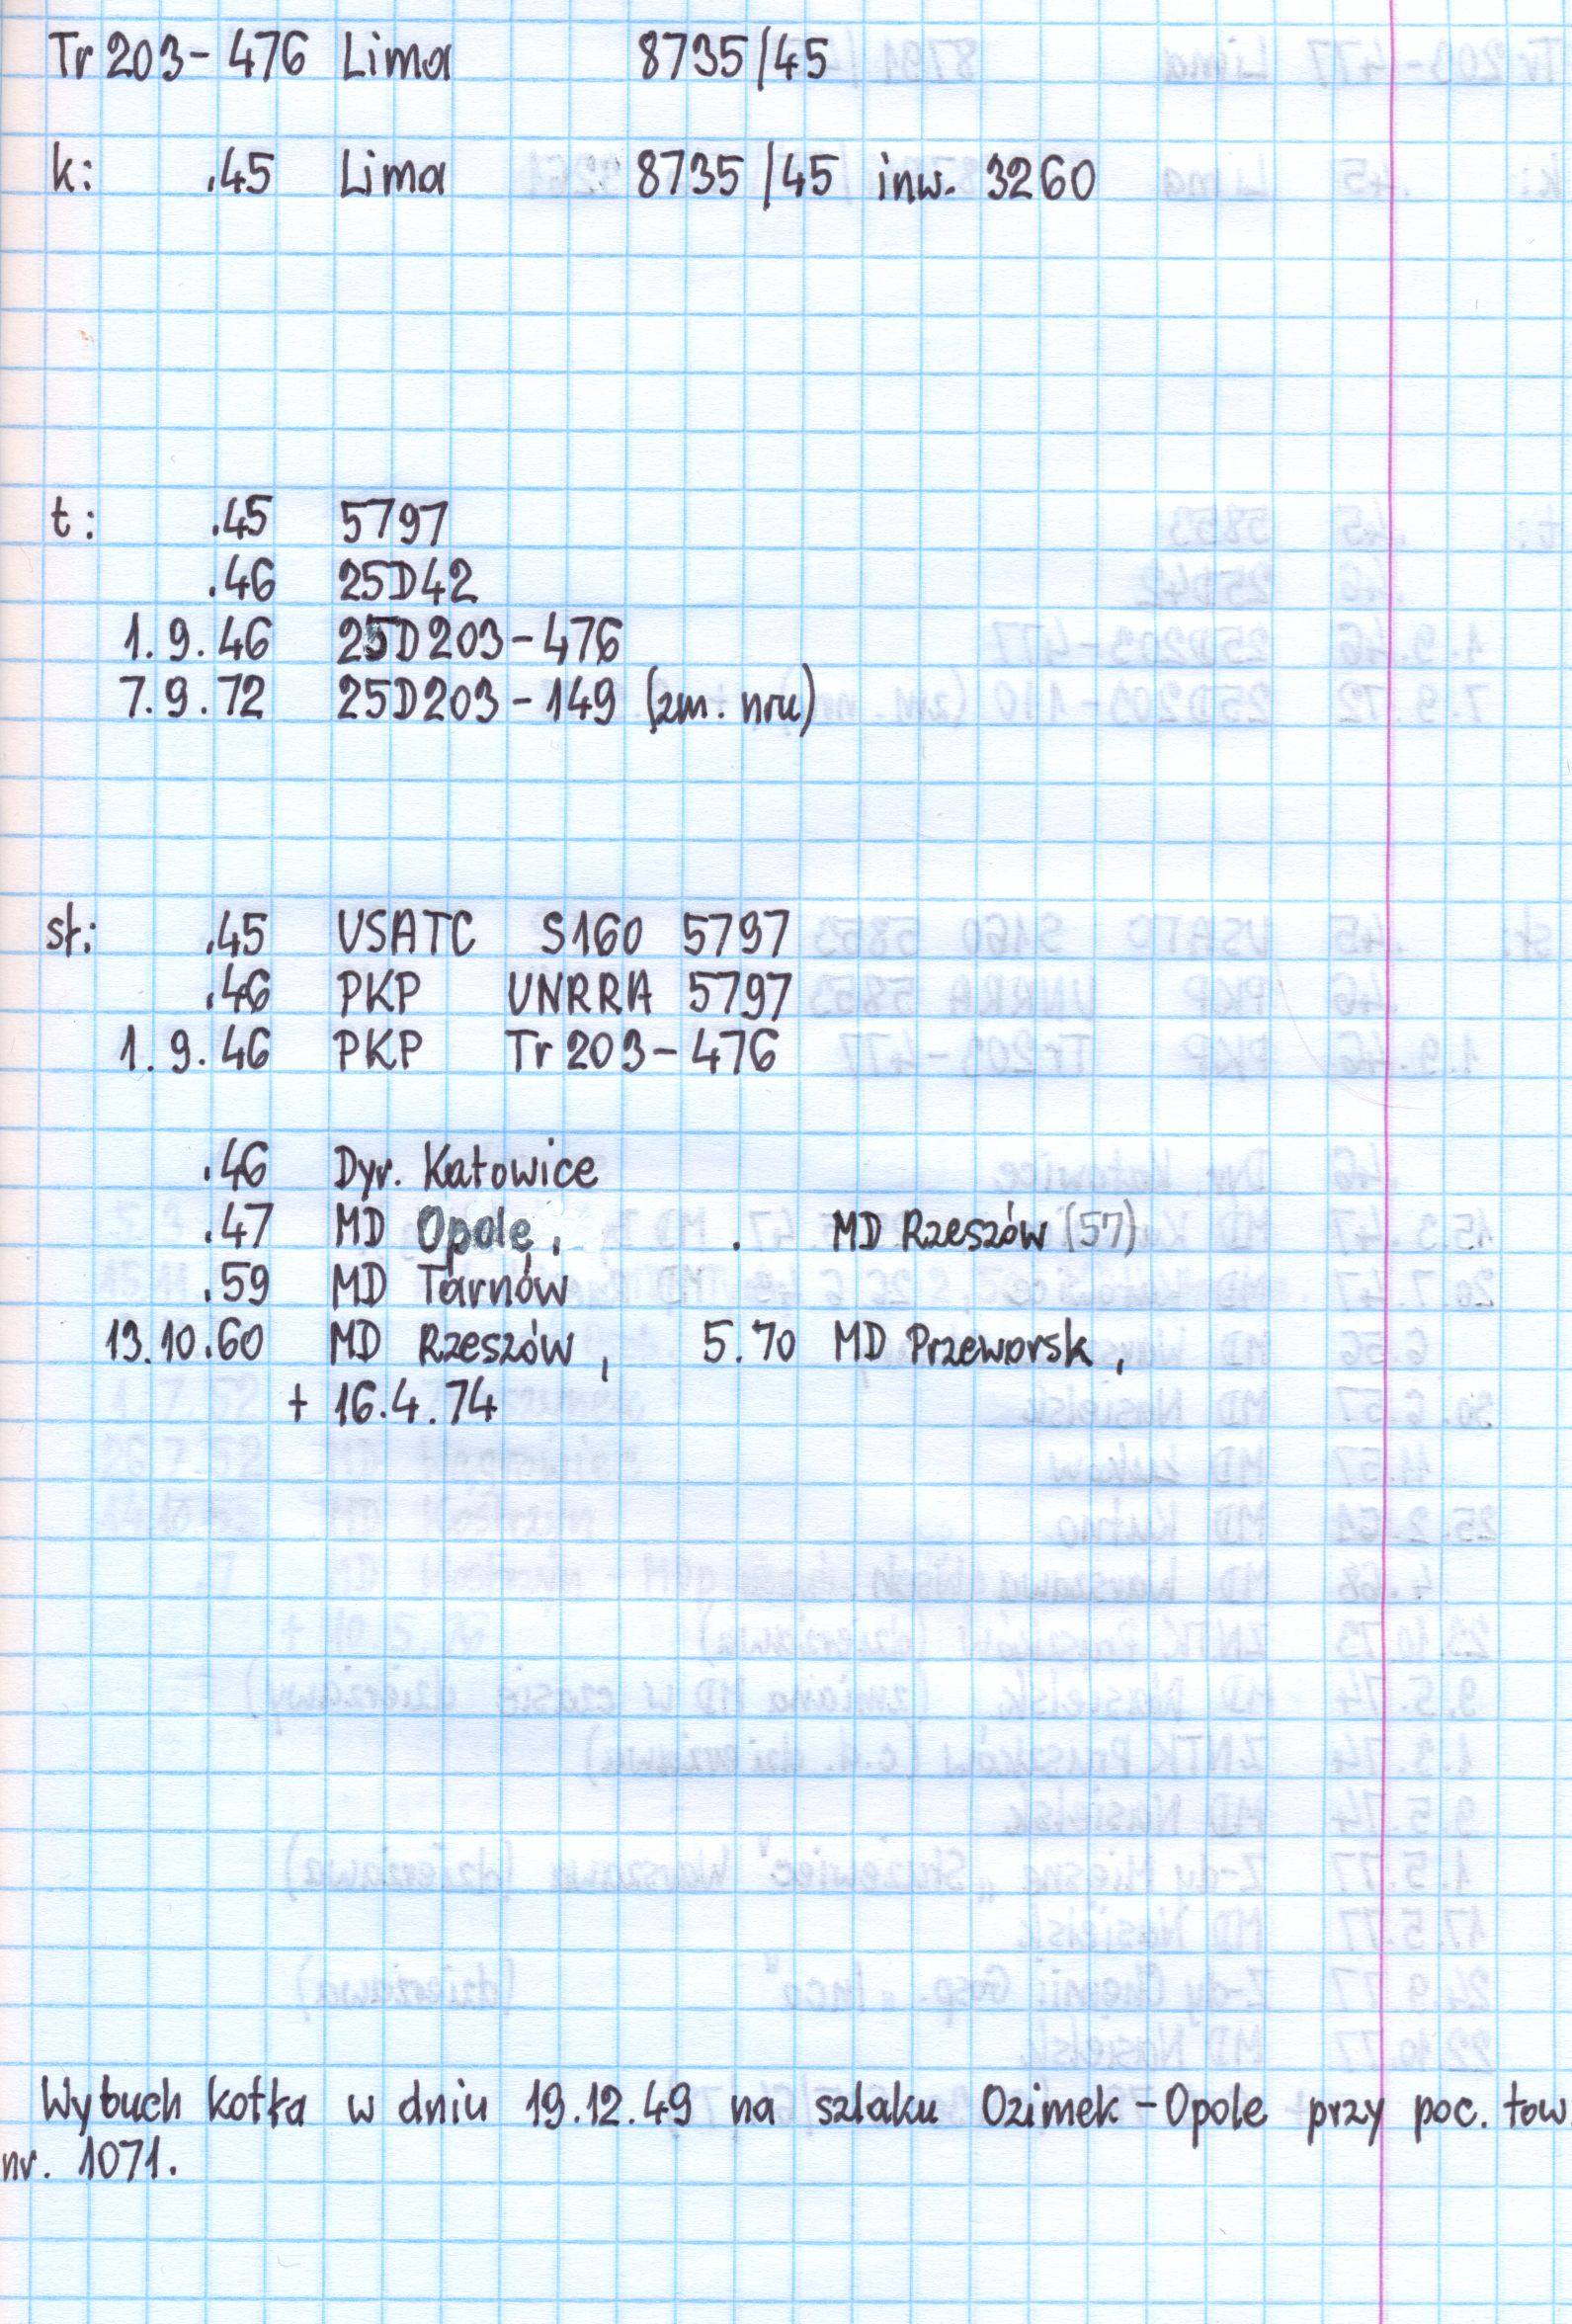 Tr 203-476 Lima 8735/45
k: .45 Lima 8735/45 inw. 3260
t: .45 5797
.46 25D42
1.9.46 25D203-476
7.9.72 25D203-149 (zm. nru)
sł: .45 USATC S160 5797
.46 PKP UNRRA 5797
1.9.46 PKP Tr 203-476
.46 Dyr. Katowice
.47 MD Opole, . MD Rzeszów (57)
.59 MD Tarnów
13.10.60 MD Rzeszów, 5.70 MD Przeworsk,
+ 16.4.74
Wybuch kotła w dniu 19.12.49 na szlaku Ozimek-Opole przy poc. tow.
nr. 1071.